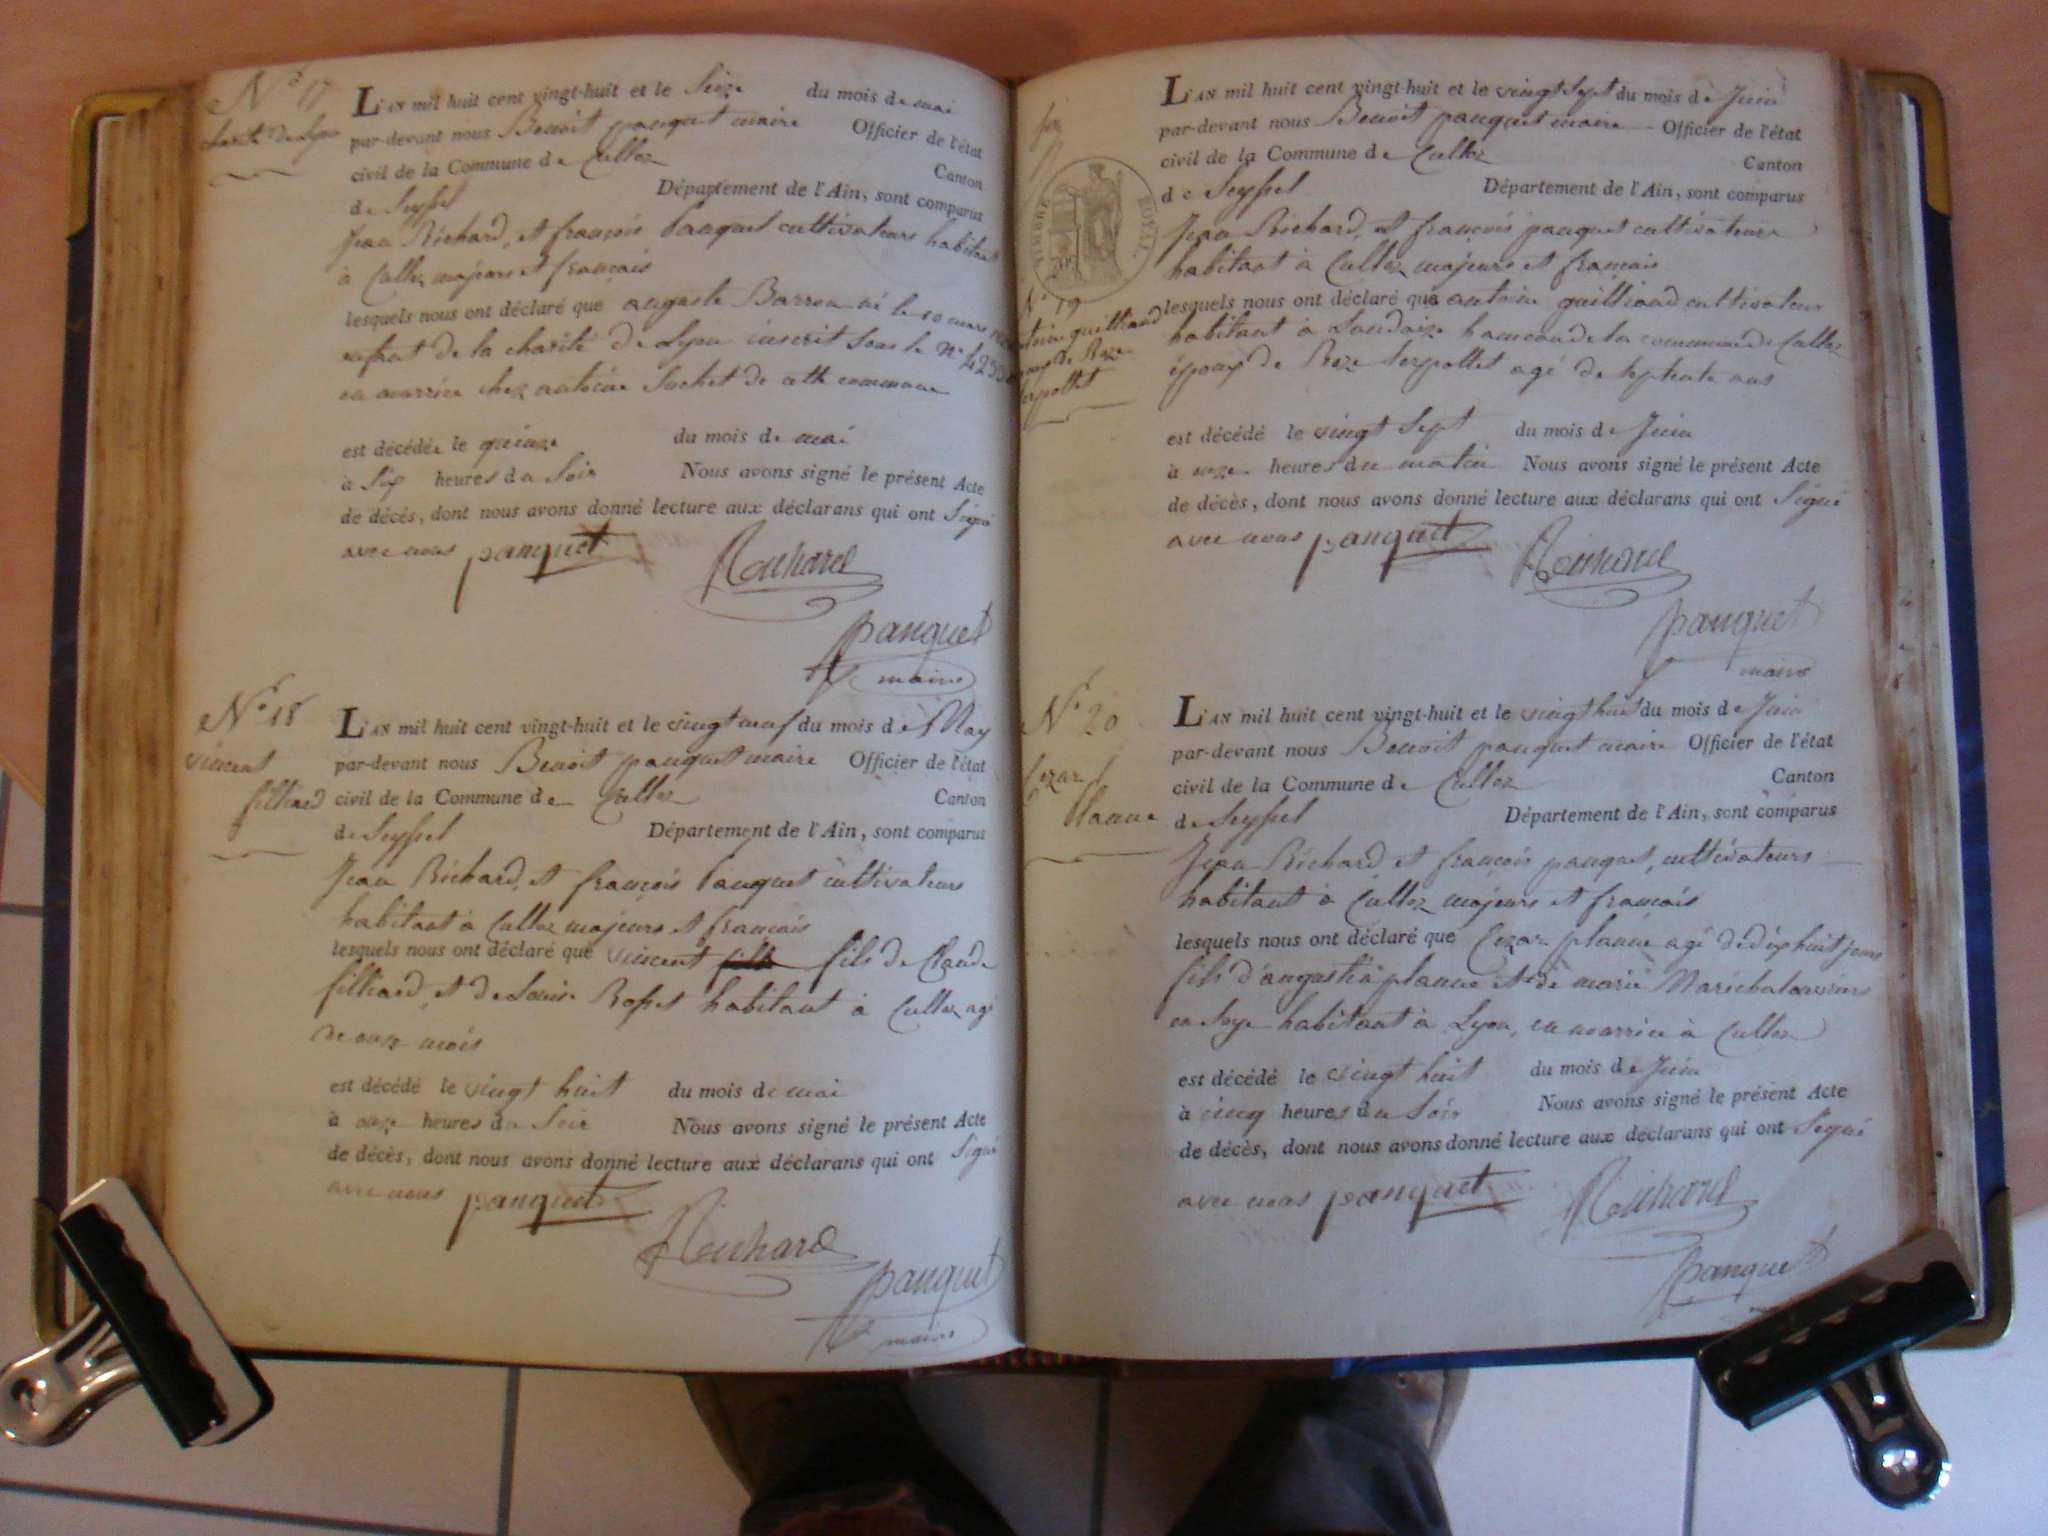 N° 17
charité de Lyon
L'AN mil huit cent vingt-huit et le Seize du mois de mai
par-devant nous Benoit pauquet maire Officier de l'état
civil de la Commune de Culloz Canton
de Seyssel Département de l'Ain, sont comparus
Jean Richard, et françois Pauquet cultivateurs habitant
à Culloz majeurs et francais
lesquels nous ont déclaré que auguste Barrou né le 10 mars
enfant de la charité de Lyon inscrit sous le n°
en nourrice chez antoine Suchet de cette commune
est décédée le quinze du mois de mai
à Six heures du Soir Nous avons signé le présent Acte
de décès, dont nous avons donné lecture aux déclarans qui ont Signé
avec nous pauquet Richard
pauquet
maire
N° 18
vincent
filliard
L'AN mil huit cent vingt-huit et le vingt neuf du mois de May
par-devant nous Benoit pauquet maire Officier de l'état
civil de la Commune de Culloz Canton
de Seyssel Département de l'Ain, sont comparus
Jean Richard, et françois Pauquet cultivateurs
habitant à Culloz majeurs et francais
lesquels nous ont déclaré que vincent fils de Claude
filliard, et de Louise Rosset habitant à Culloz agé
de onze mois
est décédé le vingt huit du mois de mai
à onze heures du Soir Nous avons signé le présent Acte
de décès, dont nous avons donné lecture aux déclarans qui ont Signé
avec nous pauquet
Richard
pauquet
maire
TIMBRE ROYAL
N° 19
antoine guilliand
epoux de Roze
Serpollet
L'AN mil huit cent vingt-huit et le vingt Sept du mois de Juin
par-devant nous Benoit pauquet maire Officier de l'état
civil de la Commune de Culloz Canton
de Seyssel Département de l'Ain, sont comparus
Jean Richard, et françois pauquet cultivateurs
habitant à Culloz majeurs et francais
lesquels nous ont déclaré que antoine guilliand cultivateur
habitant à Landaize hameau de la commune de Culloz
époux de Roze Serpollet agé de septente ans
est décédé le vingt Sept du mois de Juin
à onze heures du matin Nous avons signé le présent Acte
de décès, dont nous avons donné lecture aux déclarans qui ont Signé
avec nous pauquet Richard
pauquet
maire
N° 20
Cezar
planne
L'AN mil huit cent vingt-huit et le vingt huit du mois de Juin
par-devant nous Benoit pauquet maire Officier de l'état
civil de la Commune de Culloz Canton
de Seyssel Département de l'Ain, sont comparus
Jean Richard et françois pauquet, cultivateurs
habitant à Culloz majeurs et francais
lesquels nous ont déclaré que Cezar planne agé de dix huit jours
fils d'augustin planne et de marie Maréchal ouvriers
en Soye habitant à Lyon, en nourrice à Culloz
est décédé le vingt huit du mois de Juin
à cinq heures du Soir Nous avons signé le présent Acte
de décès, dont nous avons donné lecture aux déclarans qui ont Signé
avec nous pauquet Richard
pauquet